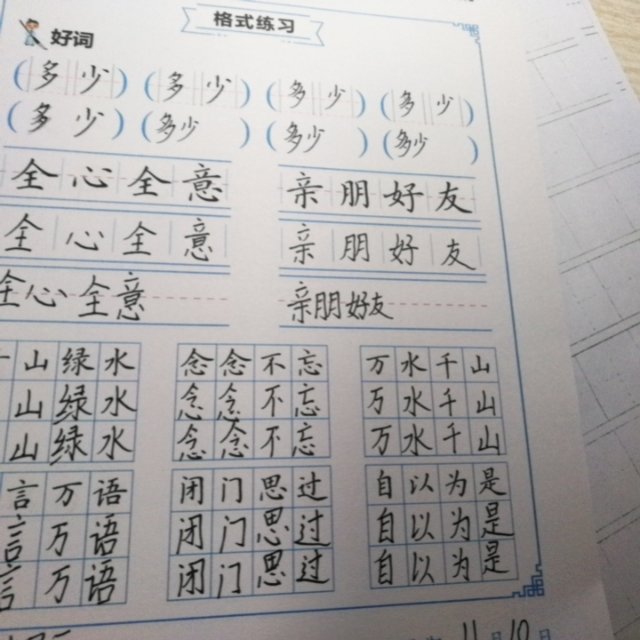 格式练习
好词
(多少) (多少) (多少) (多少)
(多少) (多少) (多少) (多少)
全心全意 亲朋好友
全心全意 亲朋好友
全心全意 亲朋好友
山绿水 念念不忘 万水千山
山绿水 念念不忘 万水千山
山绿水 念念不忘 万水千山
言万语 闭门思过 自以为是
言万语 闭门思过 自以为是
言万语 闭门思过 自以为是
11月10日